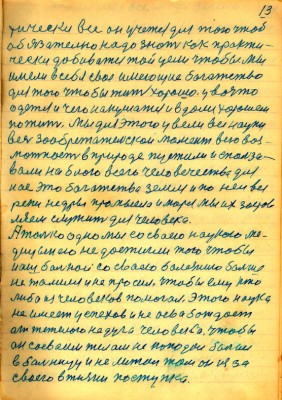 13
тически все он учете для того чтоб
обязателно надо знат как практи-
чески добиватся той цели чтобы мы
имели в себя свое имеющие богатство
для того чтобы жит хорошо. у во что
одется и чего накушатся и в доми хорошем
пожит. Мы для этого увели всю науку
весь изобретателской момент всю воз-
можност в природе пустили
вали на благо всего человечества для
нас это богатства земля и по ней все
реки недры промысла и моря мы их заста
вляем служит для человека.
А толко одно мы со своего научного ме-
дицинского не достигли того чтобы
наш балной со своего болезнию болше
не жалился и не просил. чтобы ему кто
либо из человеков помогал. Этого наука
не имеет успехов и не освабождает
от тяжелого надуга человека. чтобы
он со своем телам не попадал болше
в балницу и не лижал там он из за
своего в жизни поступка.